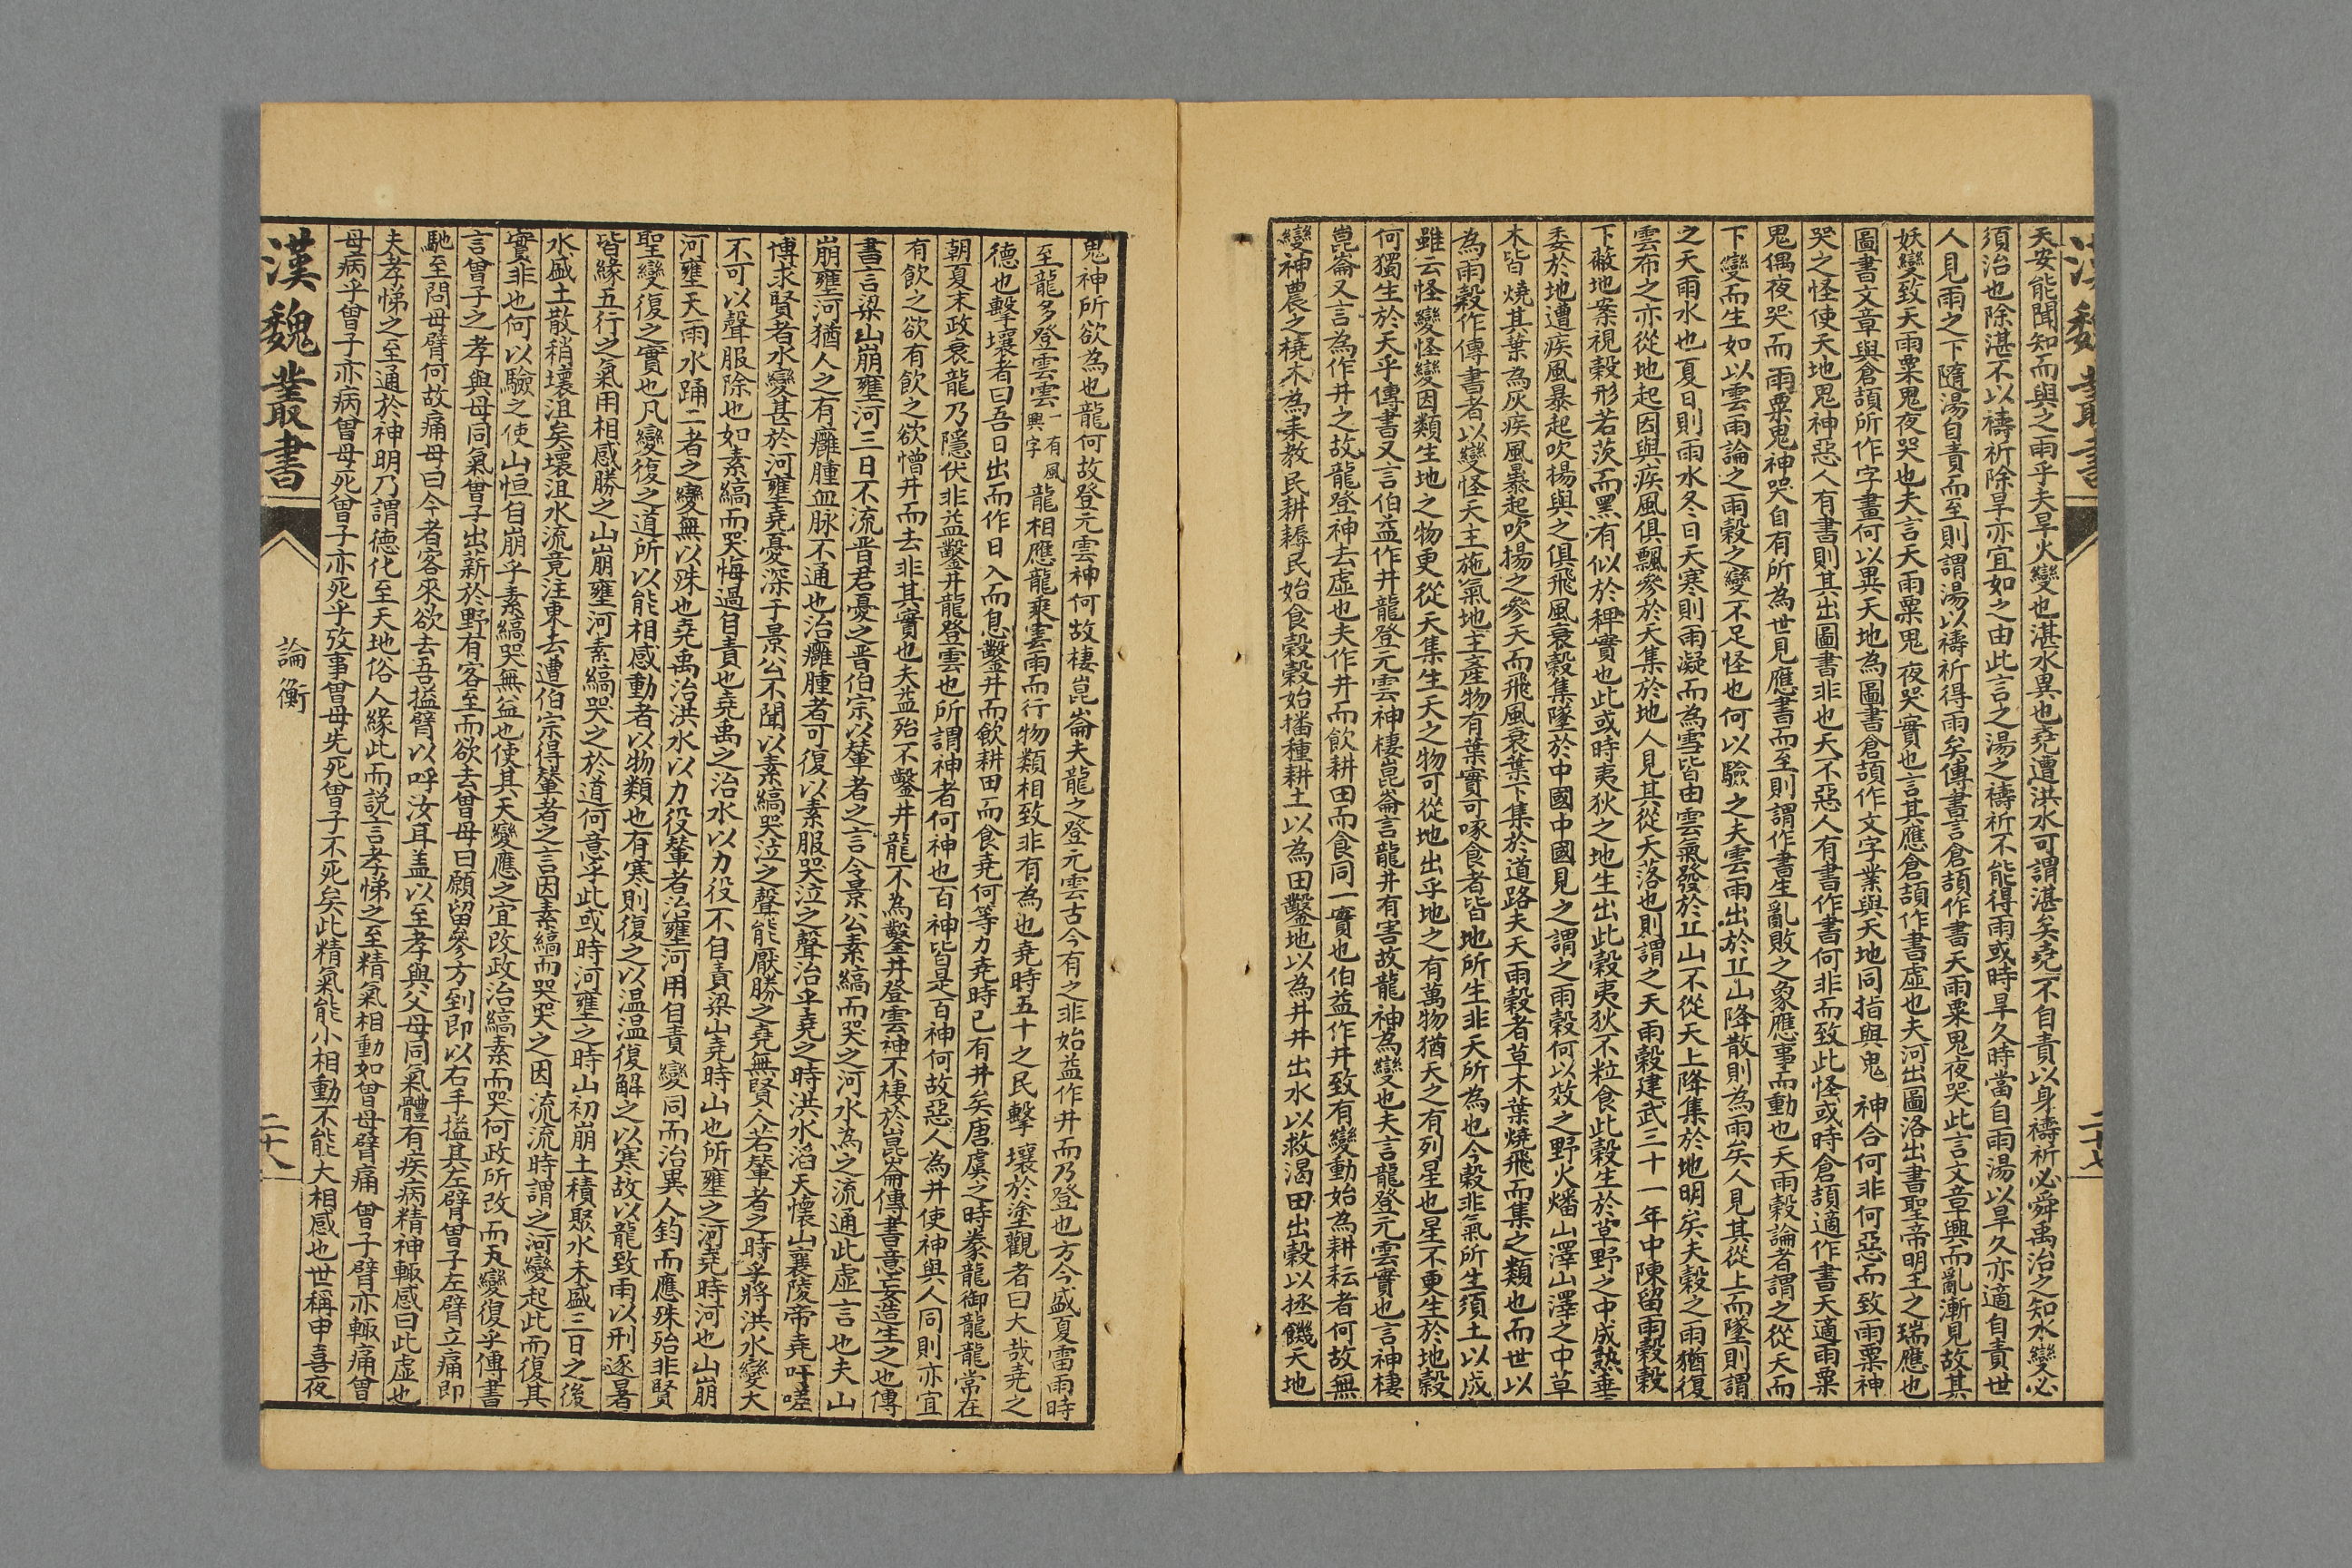 漢魏叢書
二十七
天安能聞知而與之雨乎夫旱火變也湛水異也堯遭洪水可謂湛矣堯不自責以身禱祈必舜禹治之知水變必
須治也除湛不以禱祈除旱亦宜如之由此言之湯之禱祈不能得雨或時旱久時當自雨湯以旱久亦適自責世
人見雨之下隨湯自責而至則謂湯以禱祈得雨矣傳書言倉頡作書天雨粟鬼夜哭此言文章興而亂漸見故其
妖變致天雨粟鬼夜哭也夫言天雨粟鬼夜哭實也言其應倉頡作書虛也夫河出圖洛出書聖帝明王之瑞應也
圖書文章與倉頡所作字畫何以異天地為圖書倉頡作文字業與天地同指與鬼神合何非何惡而致雨粟神
哭之怪使天地鬼神惡人有書則其出圖書非也天不惡人有書作書何非而致此怪或時倉頡適作書天適雨粟
鬼偶夜哭而雨粟鬼神哭自有所為世見應書而至則謂作書生亂敗之象應事而動也天雨穀論者謂之從天而
下變而生如以雲雨論之雨穀之變不足怪也何以驗之夫雲雨出於丘山降散則為雨矣人見其從上而墜則謂
之天雨水也夏日則雨水冬日天寒則雨凝而為雪皆由雲氣發於丘山不從天上降集於地明矣夫穀之雨猶復
雲布之亦從地起因與疾風俱飄參於天集於地人見其從天落也則謂之天雨穀建武三十一年中陳留雨穀穀
下蔽地案視穀形若茨而黑有似於稗實也此或時夷狄之地生出此穀夷狄不粒食此穀生於草野之中成熟垂
委於地遭疾風暴起吹揚與之俱飛風衰穀集墜於中國中國見之謂之雨穀何以效之野火燔山澤山澤之中草
木皆燒其葉為灰疾風暴起吹揚之參天而飛風衰葉下集於道路夫天雨穀者草木葉燒飛而集之類也而世以
為雨穀作傳書者以變怪天主施氣地主產物有葉實可啄食者皆地所生非天所為也今穀非氣所生須土以成
雖云怪變怪變因類生地之物更從天集生天之物可從地出乎地之有萬物猶天之有列星也星不更生於地穀
何獨生於天乎傳書又言伯益作井龍登元雲神棲崑崙言龍井有害故龍神為變也夫言龍登元雲實也言神棲
崑崙又言為作井之故龍登神去虛也夫作井而飲耕田而食同一實也伯益作井致有變動始為耕耘者何故無
變神農之橈木為耒教民耕耨民始食穀穀始播種耕土以為田鑿地以為井井出水以救渴田出穀以拯饑天地
鬼神所欲為也龍何故登元雲神何故棲崑崙夫龍之登元雲古今有之非始益作井而乃登也方今盛夏雷雨時
至龍多登雲雲一有風興字龍相應龍乘雲雨而行物類相致非有為也堯時五十之民擊壤於塗觀者曰大哉堯之
德也擊壤者曰吾日出而作日入而息鑿井而飲耕田而食堯何等力堯時已有井矣唐虞之時豢龍御龍龍常在
朝夏末政衰龍乃隱伏非益鑿井龍登雲也所謂神者何神也百神皆是百神何故惡人為井使神與人同則亦宜
有飲之欲有飲之欲憎井而去非其實也夫益殆不鑿井龍不為鑿井登雲神不棲於崑崙傳書意妄造生之也傳
書言梁山崩壅河三日不流晋君憂之晋伯宗以輦者之言令景公素縞而哭之河水為之流通此虛言也夫山
崩壅河猶人之有癰腫血脉不通也治癰腫者可復以素服哭泣之聲治乎堯之時洪水滔天懷山襄陵帝堯吁嗟
博求賢者水變甚於河壅堯憂深于景公不聞以素縞哭泣之聲能厭勝之堯無賢人若輦者之時乎將洪水變大
不可以聲服除也如素縞而哭悔過自責也堯禹之治水以力役不自責梁山堯時山也所壅之河堯時河也山崩
河壅天雨水踊二者之變無以殊也堯禹治洪水以力役輦者治壅河用自責變同而治異人鈞而應殊殆非賢
聖變復之實也凡變復之道所以能相感動者以物類也有寒則復之以温温復解之以寒故以龍致雨以刑逐暑
皆緣五行之氣用相感勝之山崩壅河素縞哭之於道何意乎此或時河壅之時山初崩土積聚水未盛三日之後
水盛土散稍壞沮矣壞沮水流竟注東去遭伯宗得輦者之言因素縞而哭哭之因流流時謂之河變起此而復其
實非也何以驗之使山恒自崩乎素縞哭無益也使其天變應之宜改政治縞素而哭何政所改而天變復乎傳書
言曾子之孝與母同氣曾子出薪於野有客至而欲去曾母曰願留參方到即以右手搤其左臂曾子左臂立痛即
馳至問母臂何故痛母曰今者客來欲去吾搤臂以呼汝耳盖以至孝與父母同氣體有疾病精神輒感曰此虛也
夫孝悌之至通於神明乃謂德化至天地俗人緣此而說言孝悌之至精氣相動如曾母臂痛曾子臂亦輒痛曾
母病乎曾子亦病曾母死曾子亦死乎攷事曾母先死曾子不死矣此精氣能小相動不能大相感也世稱申喜夜
漢魏叢書
論衡
二十八